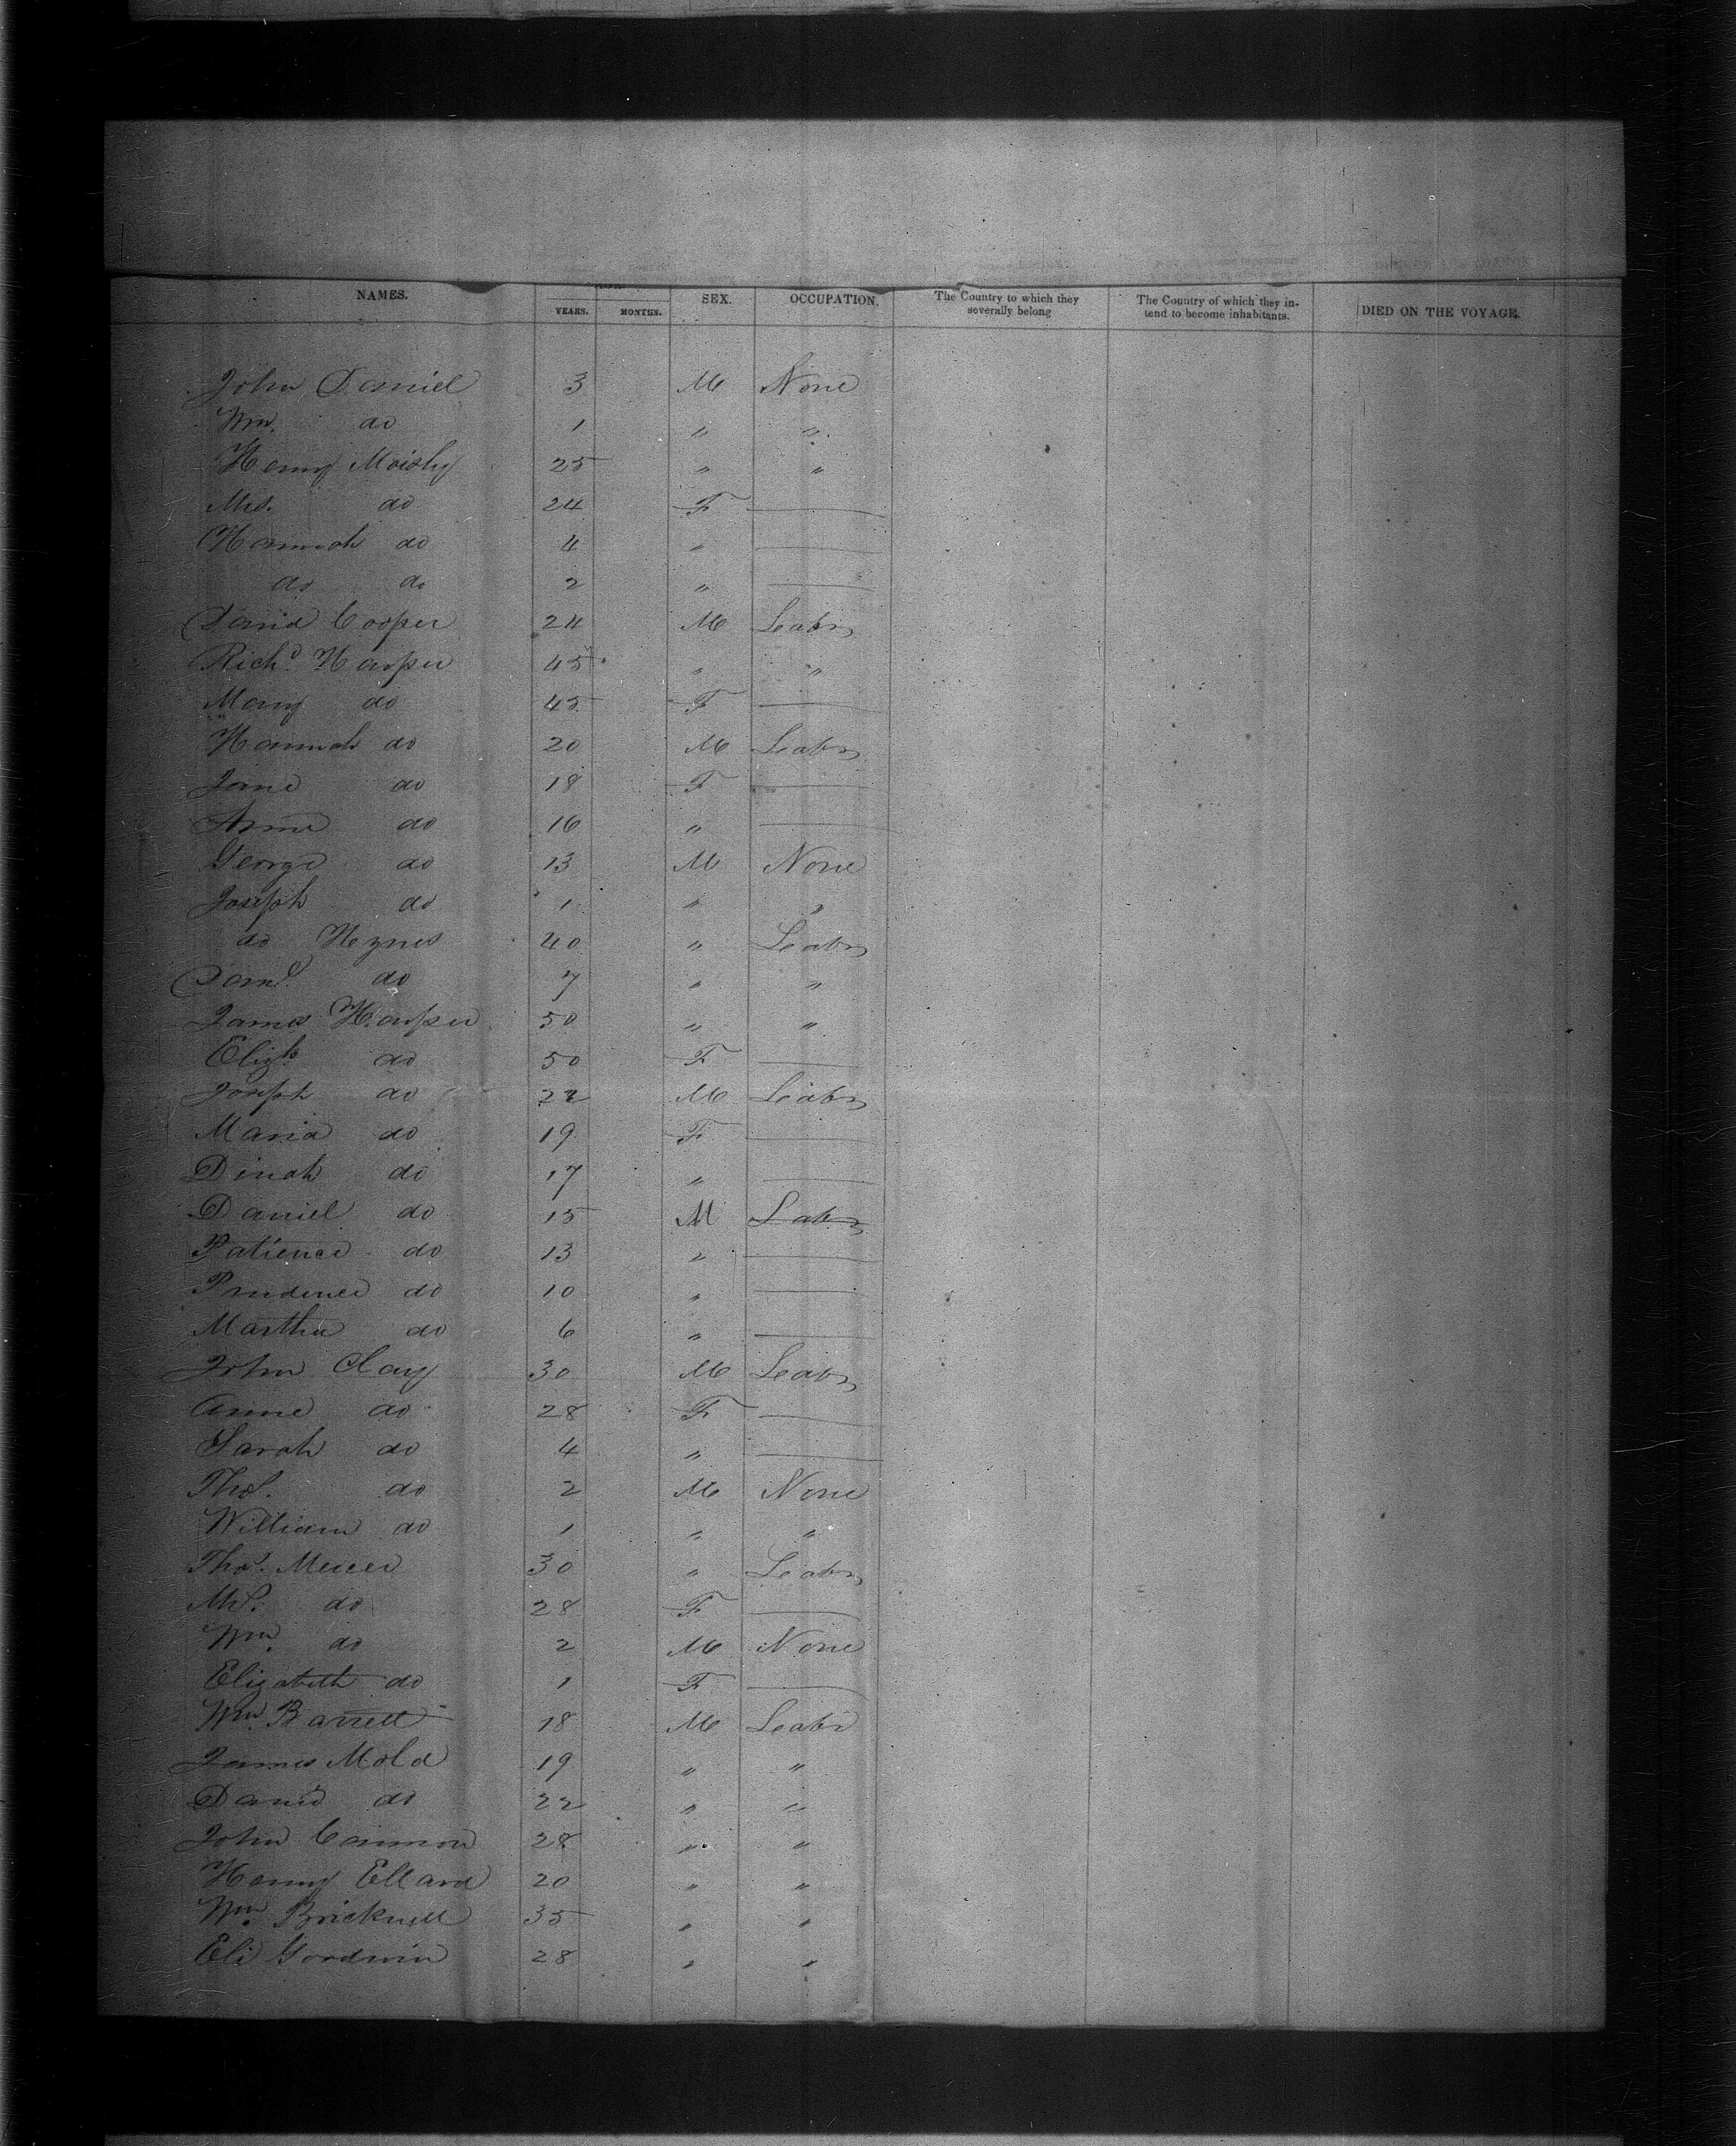 NAMES. AGE. YEARS. MONTHS. SEX. OCCUPATION. The Country to which they severally belong The Country of which they intend to become inhabitants. DIED ON THE VOYAGE.
John Daniel 3 M None
Wm. do 1 " "
Henry Moisly 25 " "
Mrs. do 24 F —
Hannah do 4 " —
do do 2 " —
David Cooper 24 M Leabr
Richd. Harper 45 " "
Mary do 45 F —
Hannah do 20 M Leabr
Jane do 18 F —
Anne do 16 " —
George do 13 M None
Joseph do 1 " "
do Heynes 40 " Leabr
Saml. do 7 " "
James Harper 50 " "
Elizh. do 50 F —
Joseph do 22 M Leabr
Maria do 19 F —
Dinah do 17 " —
Daniel do 15 M Labr
Patience do 13 " —
Prudence do 10 " —
Martha do 6 " —
John Clay 30 M Leabr
Anne do 28 F —
Sarah do 4 " —
Thos. do 2 M None
William do 1 " "
Thos. Mercer 30 " Leabr
Ms. do 28 F —
Wm. do 2 M None
Elizabeth do 1 F —
Wm. Barrett 18 M Leabr
James Mold 19 " "
David do 22 " "
John Cannon 28 " "
Henry Ellard 20 " "
Wm. Bricknell 35 " "
Eli Goodwin 28 " "